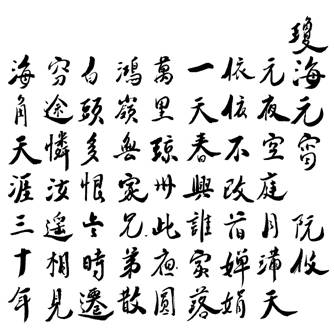 瓊海元宵 阮攸
元夜空庭月滿天
依依不改舊嬋娟
一天春興誰家落
萬里琼州此夜圓
鴻嶺無家兄弟散
白頭多恨歲時遷
穷途憐汝遙相見
海角天涯三十年